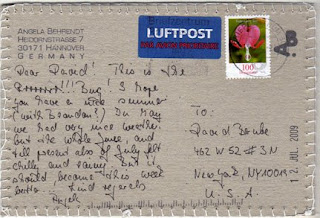 ANGELA BEHRENDT
HEIDORNSTRASSE 7
30171 HANNOVER
GERMANY
Briefzentrum
LUFTPOST
100
Dear David! This is the
!!! Bug! I hope
you have a nice summer
(with Brandon!) In May
we had very nice weather
but the whole June, and
till present also of July felt
chilly and rainy. But it
should become this week
better. Kind regards
Angela
TO:
David
462 W 52 #3N
New York, NY 10019
U.S.A
12. JUL. 2009